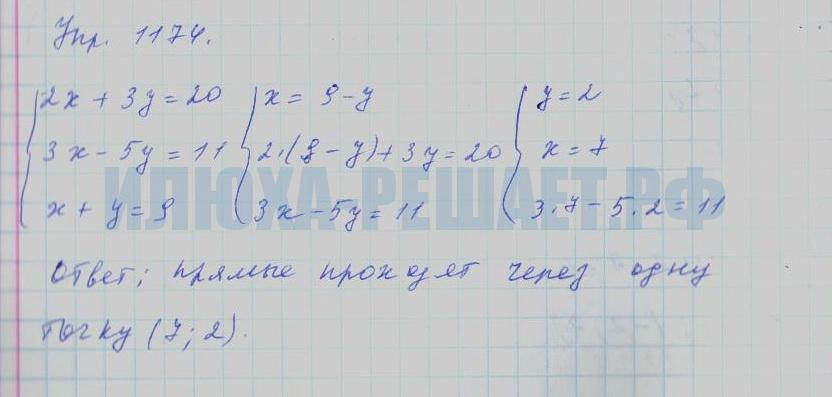 Упр. 1174.
2x + 3y = 20 x = 9 - y y = 2
3x - 5y = 11 2·(9 - y) + 3y = 20 x = 7
x + y = 9 3x - 5y = 11 3·7 - 5·2 = 11
ИЛЮХА-РЕШАЕТ.РФ
Ответ: прямые проходят через одну
точку (7; 2).